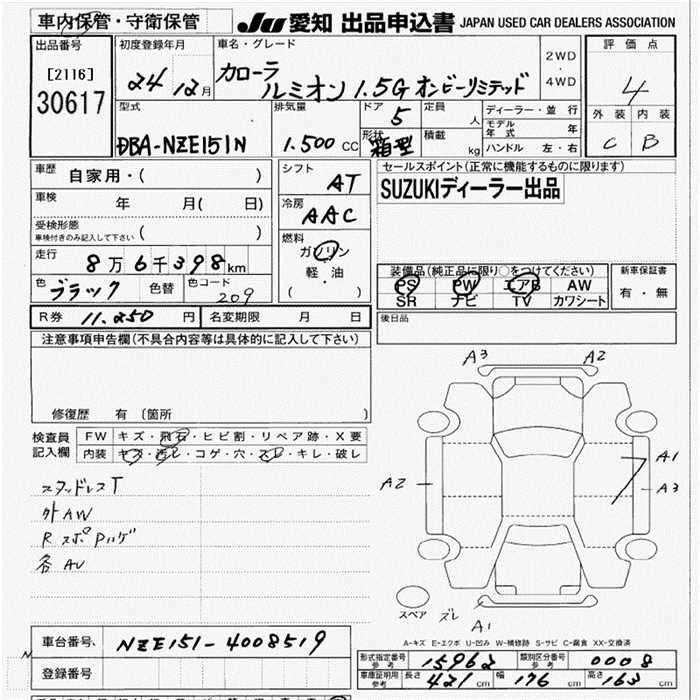 車内保管・守衛保管
JU 愛知 出品申込書 JAPAN USED CAR DEALERS ASSOCIATION
出品番号
[2116]
30617
初度登録年月
24 12月
車名・グレード
カローラ
ルミオン 1.5G オンビーリミテッド
2WD
・
4WD
評価点
4
外装 内装
C B
型式
DBA-NZE151N
排気量
1.500 CC
ドア 5
形状 箱型
定員 人
積載 kg
ディーラー・並行
モデル年式 年
ハンドル 左・右
車歴 自家用・( )
車検 年 月( 日)
受検形態
車検付きのみ記入して下さい ( )
走行 8万6千398km
色 ブラック 色替 色コード 209
シフト AT
冷房 AAC
燃料
ガソリン
・
軽・油
( )
セールスポイント(正常に機能するものに限ります)
SUZUKIディーラー出品
装備品(純正品に限り○をつけてください)
PS PW エアB AW
SR ナビ TV カワシート
新車保証書
有・無
R券 11.250円 名変期限 月 日
後日品
注意事項申告欄(不具合内容等は具体的に記入して下さい)
修復歴 有 (箇所 )
検査員
記入欄
FW キズ・飛石・ヒビ割・リペア跡・X要
内装 キズ・汚レ・コゲ・穴・スレ・キレ・破レ
スタッドレスT
外AW
R スポ
各AU
A3 A2
A2
A1
A3
スペア
ズレ A1
A-キズ E-エクボ U-凹み W-補修跡 S-サビ C-腐食 XX-交換済
車台番号 NZE151-4008519
登録番号
形式指定番号 参考 15962 類別区分番号 参考 0008
車庫証明用 参考 長さ 421cm 幅 176cm 高さ 163cm